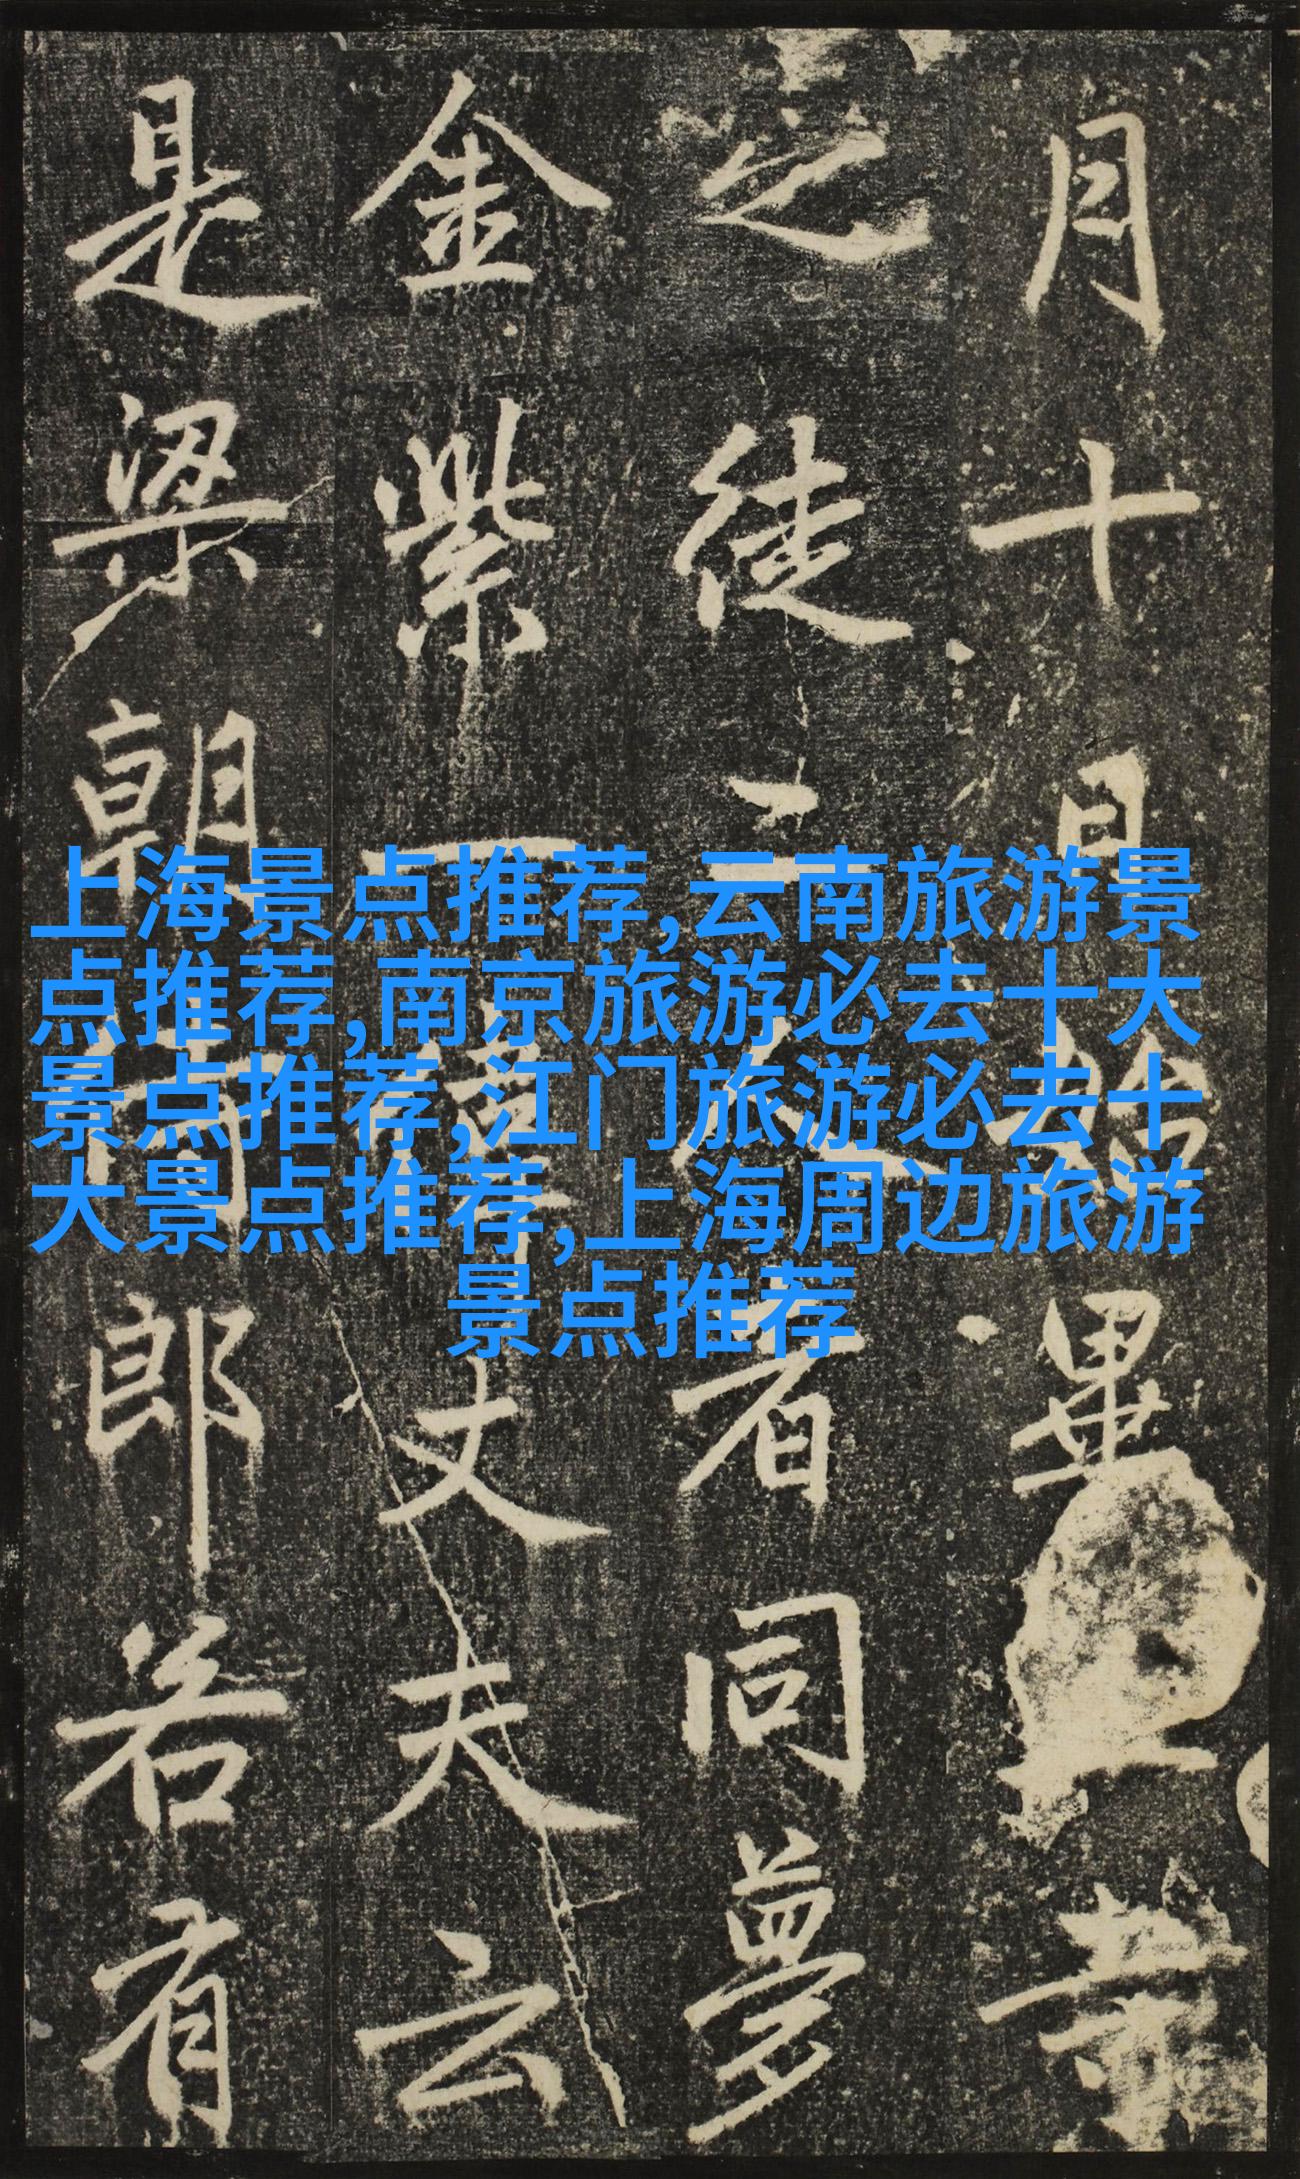 月十月始畢
之徒二人者同夢
金紫一偉丈夫云
是梁朝郎若有
上海景点推荐,云南旅游景
点推荐,南京旅游必去十大
景点推荐,江门旅游必去十
大景点推荐,上海周边旅游
景点推荐